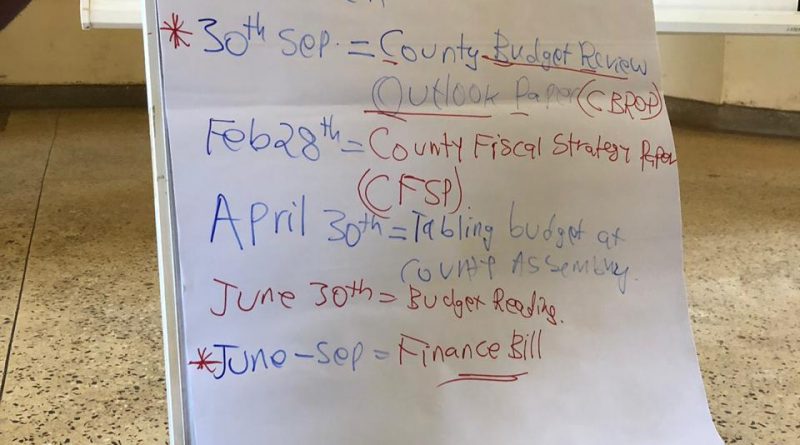 * 30th Sep. = County Budget Review
Outlook Paper (CBROP)
Feb 28th = County Fiscal Strategy Paper
(CFSP)
April 30th = Tabling budget at
County Assembly.
June 30th = Budget Reading.
* June - Sep = Finance Bill